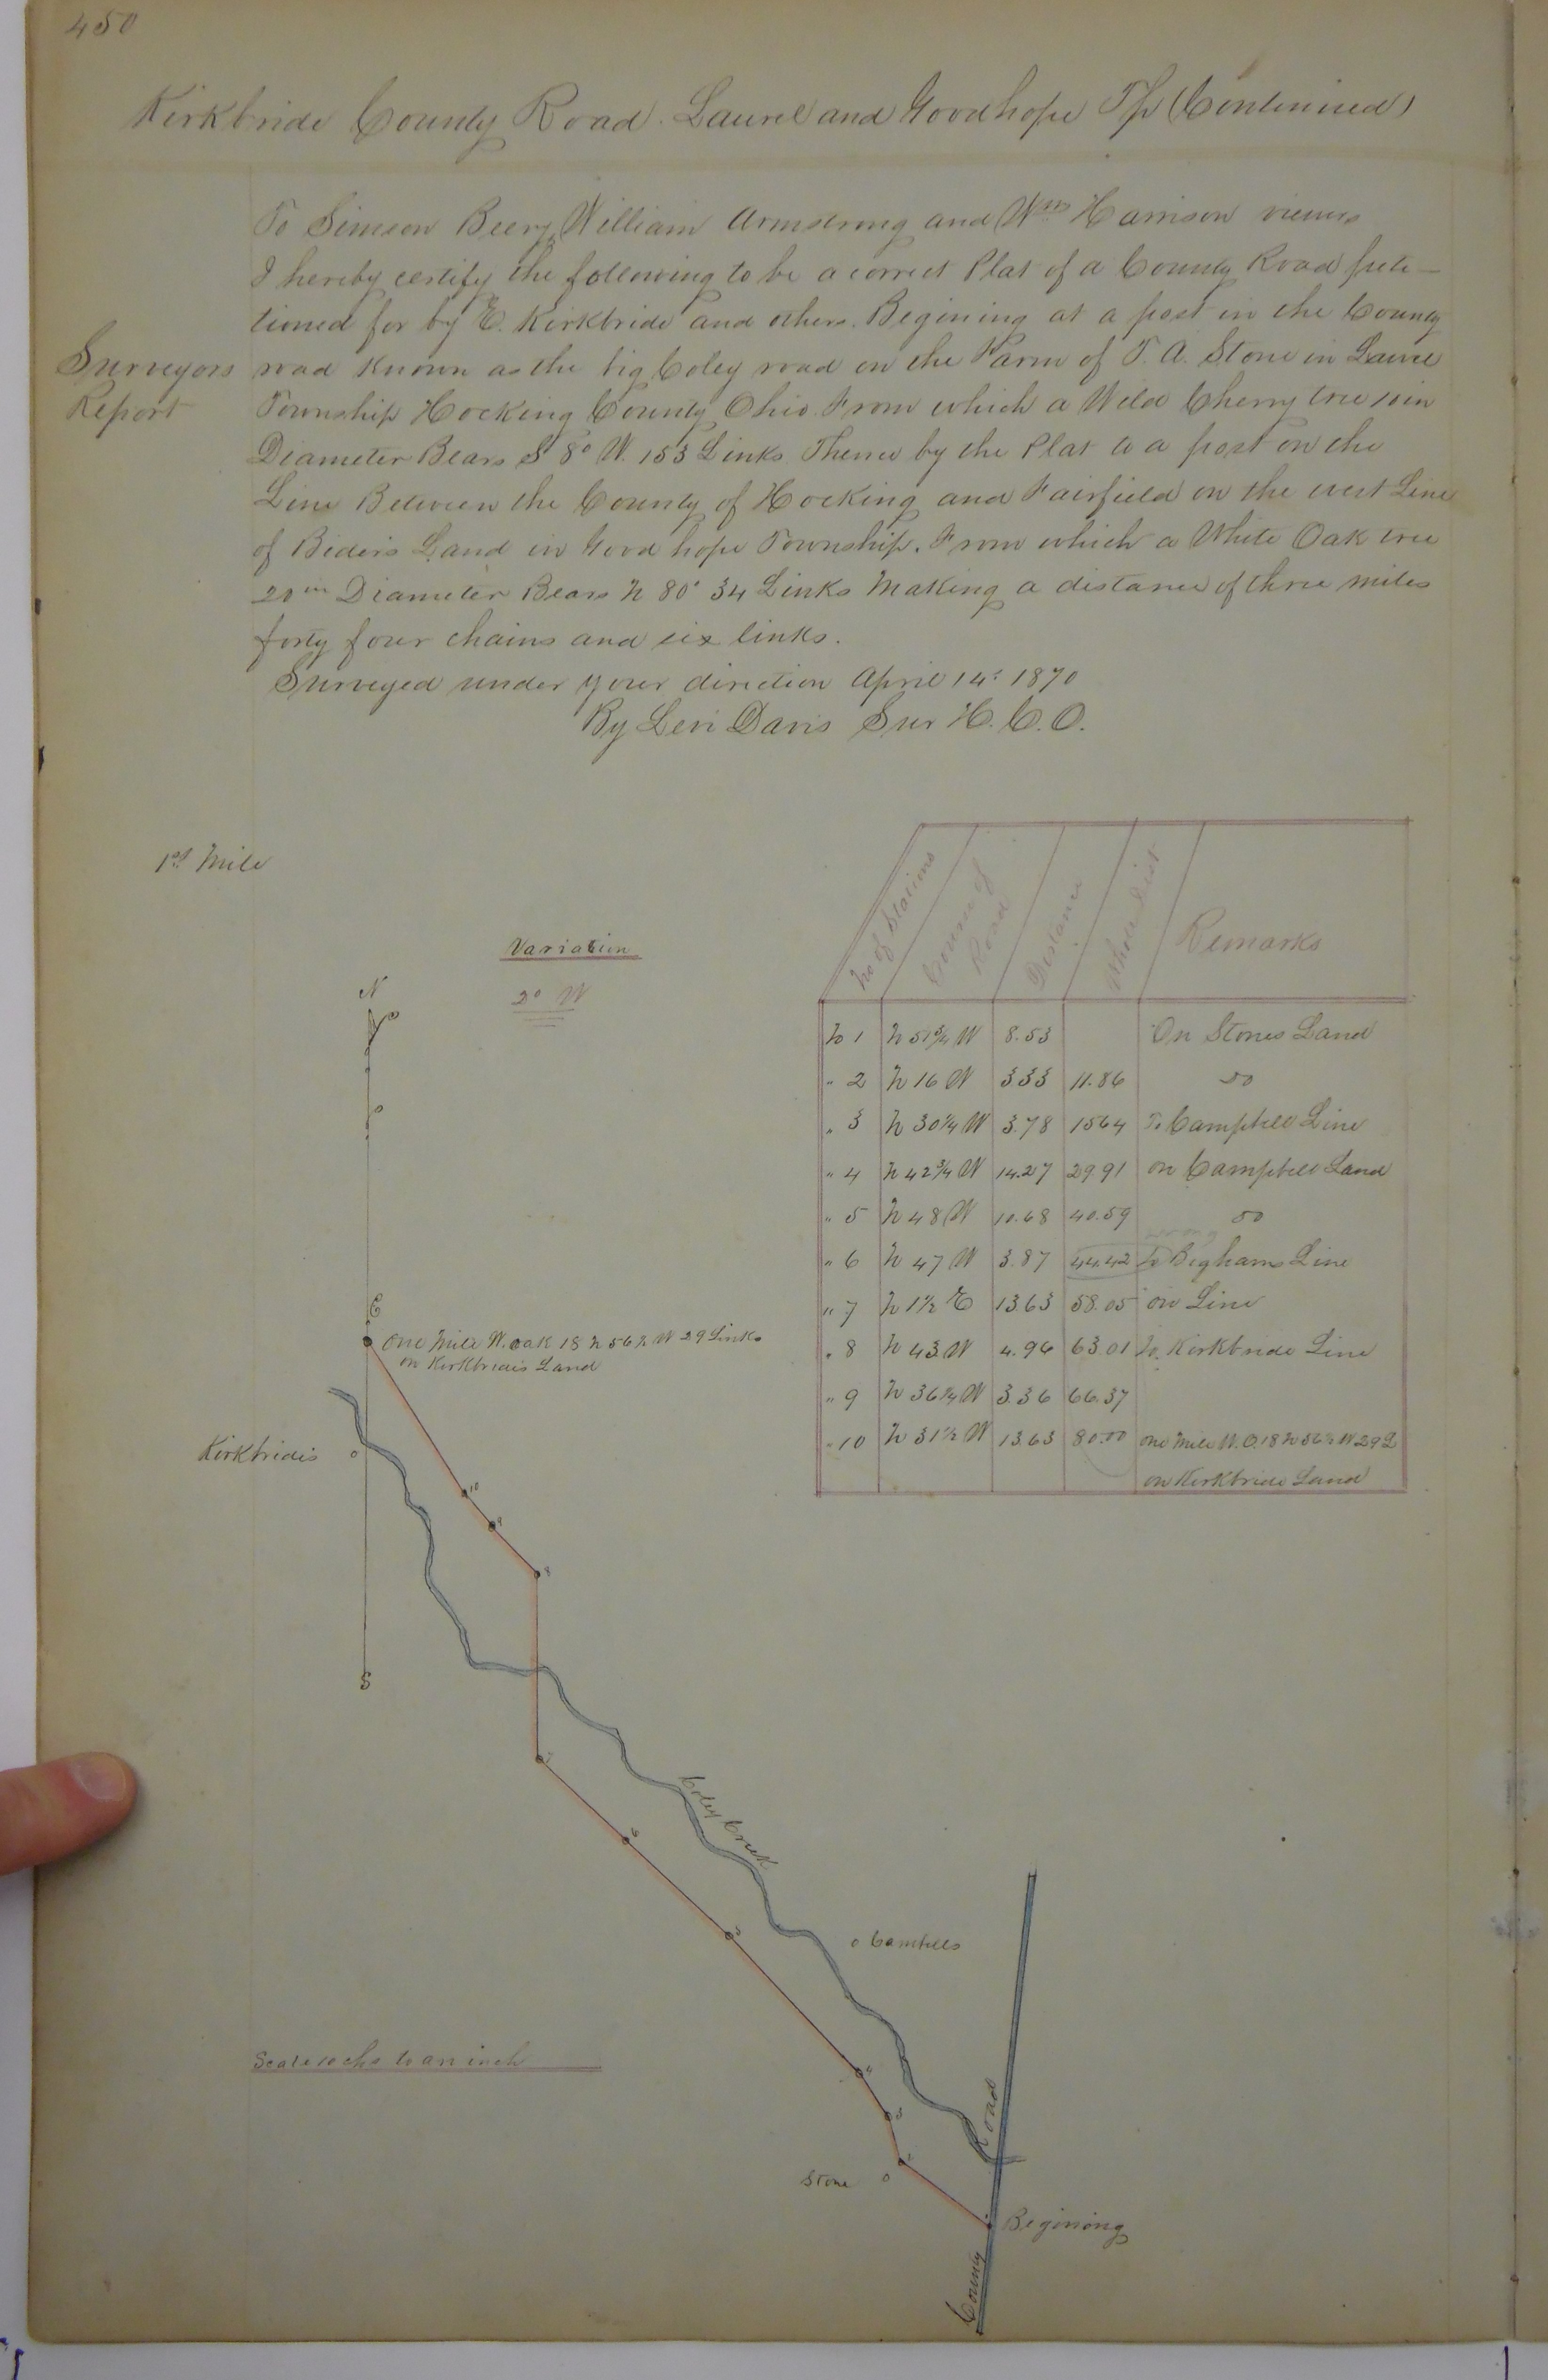 450
Kirkbride County Road. Laurel and Goodhope Tp (Continued)
To Simeon Beery, William Armstrong and Wm Harrison viewers
I hereby certify the following to be a correct Plat of a County Road peti-
tioned for by E. Kirkbride and others. Begining at a post in the County
Surveyors Report
road known as the big Coley road on the Farm of T. A. Stone in Laurel
Township Hocking County Ohio. From which a Wild Cherry tree 10 in
Diameter Bears S 8° W. 153 Links Thence by the Plat to a post on the
Line Between the County of Hocking and Fairfield on the west Line
of Land in Good hope Township. From which a White Oak tree
20 in Diameter Bears N 80° 34 Links Making a distance of three miles
forty four chains and six links.
Surveyed under your direction April 14th 1870
By Levi Davis Sur H. C. O.
1st Mile
Variation
2° W
No of Stations | Course of Road | Distance | Whole Dist | Remarks
No 1 | N 51 3/4 W | 8.53 | | On Stones Land
" 2 | N 16 W | 3.33 | 11.86 | do
" 3 | N 30 1/4 W | 3.78 | 1564 | To Campbell Line
" 4 | N 42 3/4 W | 14.27 | 29 91 | on Campbell Land
" 5 | N 48 W | 10.68 | 40.59 | do
wrong
" 6 | N 47 W | 3.87 | 44.42 | To Bighams Line
" 7 | N 1 1/2 E | 13.63 | 58.05 | on Line
" 8 | N 43 W | 4.96 | 63.01 | to Kirkbride Line
" 9 | N 36 1/4 W | 3.36 | 66.37
" 10 | N 31 1/2 W | 13.63 | 80.00 | one Mile W. O. 18 N 56 1/2 W 29 L
on Kirkbride Land
N
One Mile W. oak 18 N 56 1/2 W 29 Links
on Kirkbrides Land
Kirkbrides
10
9
8
S
7
Coley Creek
6
5
Cambells
Scale 10 chs to an inch
4
3
Road
2
Stone
Begining
County